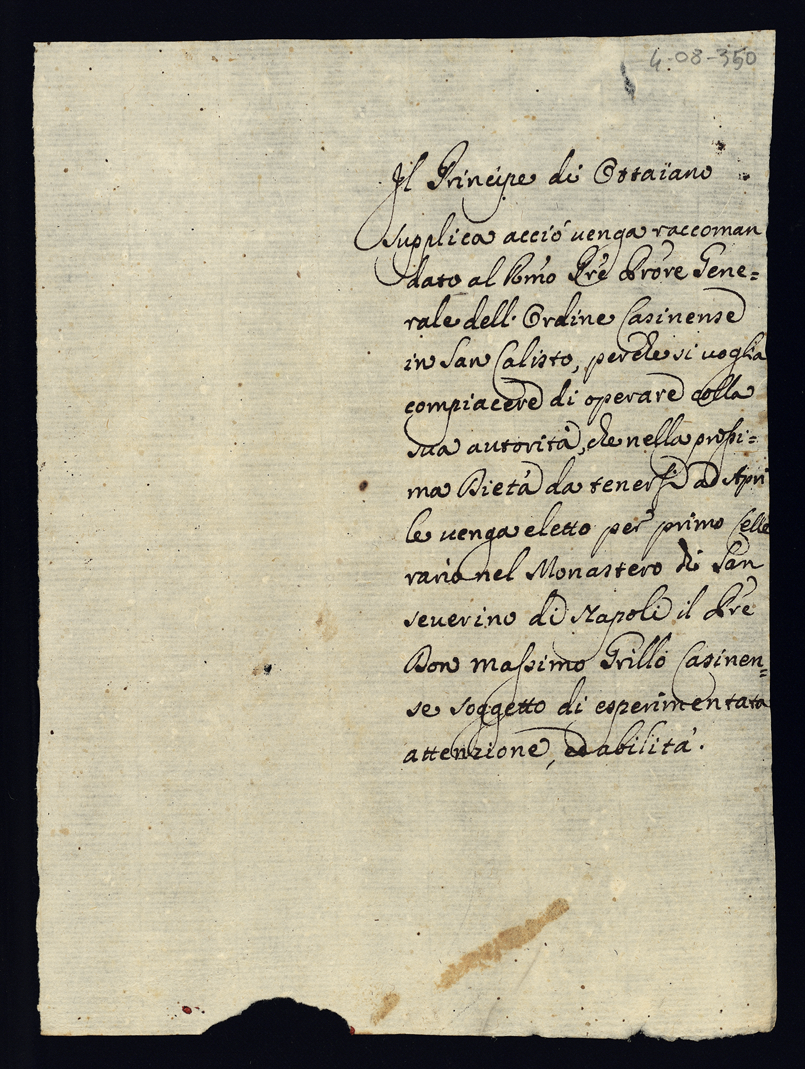 4-08-350
Il Principe di Ottaïano
supplica acciò venga raccoman
dato al Rm̃o Pr̃e Pror̃e Gene=
rale dell' Ordine Casinense
in San Calisto, perche si voglia
compiacere di operare colla
sua autorità, che nella prossi=
ma Dieta da tenersi ad Apri
le venga eletto per primo Celle
rario nel Monastero di San
severino di Napoli il Pr̃e
Don Massimo Grillo Casinen=
se soggetto di esperimentata
attenzione, ed abilità.